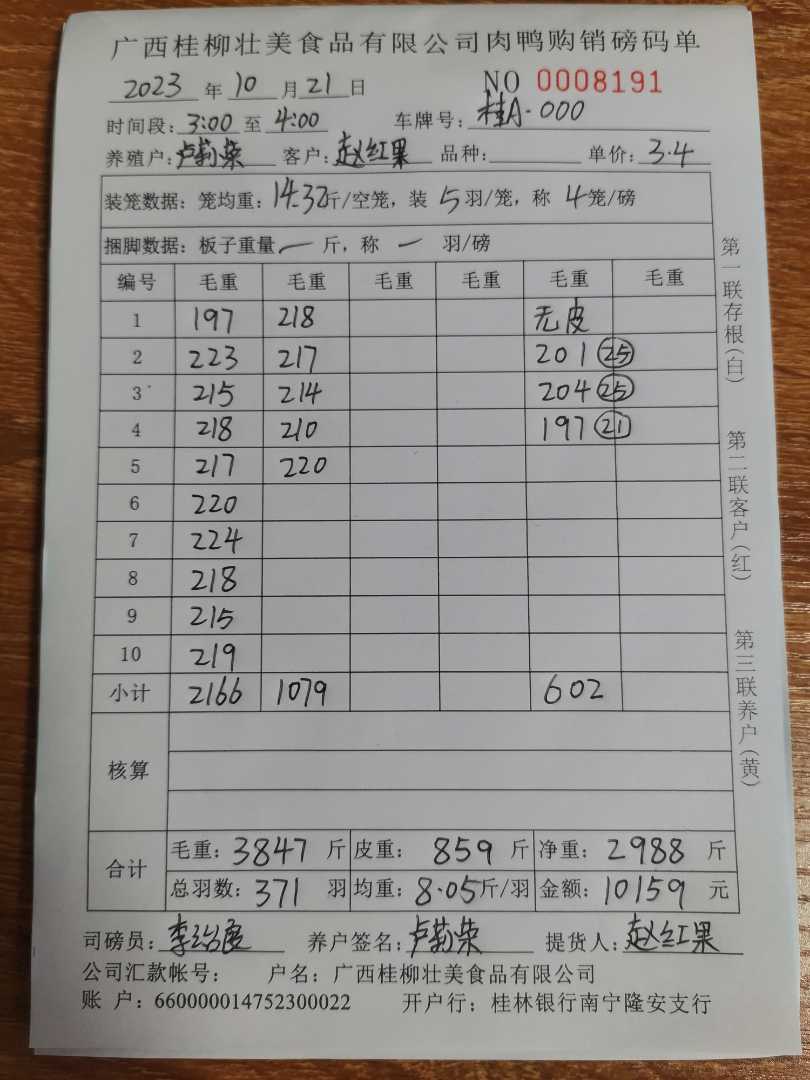 广西桂柳壮美食品有限公司肉鸭购销磅码单
2023年10月21日 NO 0008191
时间段:3:00至4:00 车牌号:桂A·000
养殖户:卢莉荣 客户:赵红果 品种: 单价:3.4
装笼数据:笼均重:14.32斤/空笼,装5羽/笼,称4笼/磅
捆脚数据:板子重量一斤,称一羽/磅
编号 毛重 毛重 毛重 毛重 毛重 毛重
1 197 218 无皮
2 223 217 201 25
3 215 214 204 25
4 218 210 197 21
5 217 220
6 220
7 224
8 218
9 215
10 219
小计 2166 1079 602
核算
合计 毛重:3847斤 皮重:859斤 净重:2988斤
总羽数:371羽 均重:8.05斤/羽 金额:10159元
司磅员:李治展 养户签名:卢莉荣 提货人:赵红果
公司汇款帐号: 户名:广西桂柳壮美食品有限公司
账户:660000014752300022 开户行:桂林银行南宁隆安支行
第一联存根(白)
第二联客户(红)
第三联养户(黄)